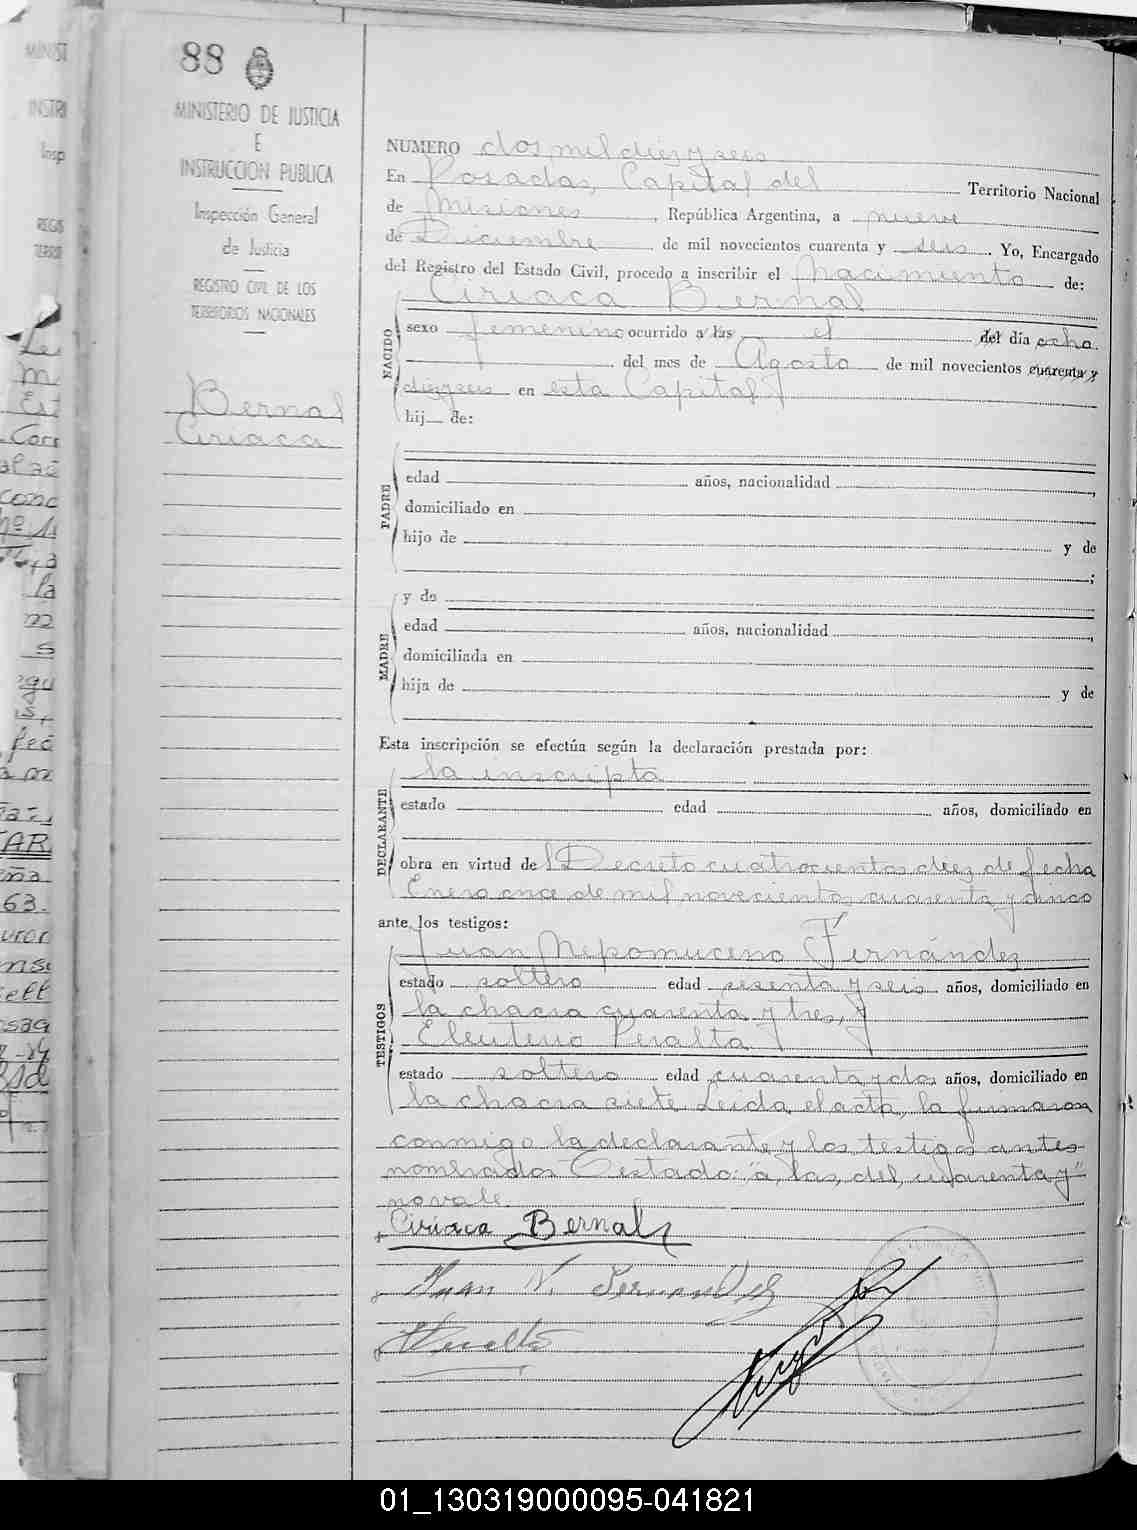 88
MINISTERIO DE JUSTICIA
E
INSTRUCCION PUBLICA
Inspección General
de Justicia
REGISTRO CIVIL DE LOS
TERRITORIOS NACIONALES
Bernal
Ciriaca
NUMERO dos mil diez y seis
En Posadas, Capital del Territorio Nacional
de Misiones, República Argentina, a nueve
de Diciembre de mil novecientos cuarenta y seis. Yo, Encargado
del Registro del Estado Civil, procedo a inscribir el Nacimiento de:
Ciriaca Bernal
NACIDO
sexo femenino ocurrido a las el del día ocho
del mes de Agosto de mil novecientos cuarenta y
diez y seis en esta Capital
hij de:
PADRE
edad años, nacionalidad ,
domiciliado en
hijo de y de
;
MADRE
y de
edad años, nacionalidad ,
domiciliada en
hija de y de
Esta inscripción se efectúa según la declaración prestada por:
la inscripta
DECLARANTE
estado edad años, domiciliado en
obra en virtud del Decreto cuatrocientos diez de fecha
Enero once de mil novecientos cuarenta y cinco
ante los testigos:
Juan Nepomuceno Fernández
TESTIGOS
estado soltero edad sesenta y seis años, domiciliado en
la chacra cuarenta y tres, y
Eleuterio Peralta
estado soltero edad cuarenta y dos años, domiciliado en
la chacra siete. Leida el acta, la firmaron
conmigo la declarante y los testigos antes
nombrados. Testado: "a las, del, cuarenta y"
no vale.
Ciriaca Bernal
Juan N. Fernandez
Peralta
01_130319000095-041821